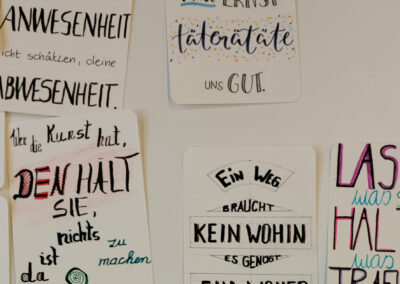 ANWESENHEIT
nicht schätzen, deine
ABWESENHEIT.
ERNST
täterätäte
UNS GUT.
Wen die Kunst hat,
DEN HÄLT
SIE,
nichts
zu
machen
ist
da
EIN WEG
BRAUCHT
KEIN WOHIN
ES GENÜGT
LAS
was
HAL
was